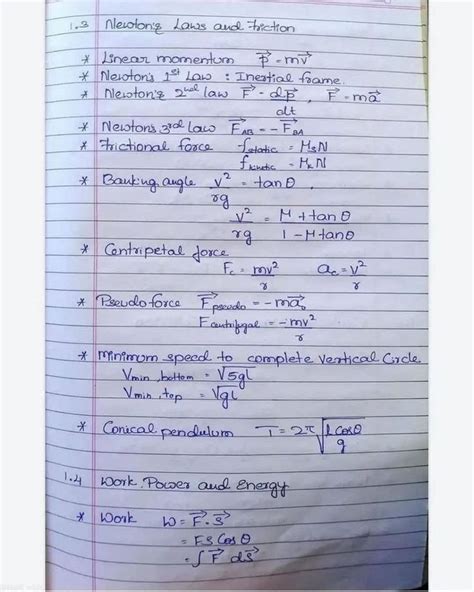 1.3 Newton's Laws and Friction
* Linear momentum p⃗ = mv⃗
* Newton's 1st Law : Inertial frame.
* Newton's 2nd law F⃗ = dp⃗/dt , F⃗ = ma⃗
* Newton's 3rd law F⃗AB = - F⃗BA
* Frictional force fstatic = μsN
fkinetic = μkN
* Banking angle v²/rg = tanθ ,
v²/rg = μ + tanθ / 1 - μtanθ
* Centripetal force
Fc = mv²/r ac = v²/r
* Pseudo force F⃗pseudo = - ma⃗o
Fcentrifugal = -mv²/r
* Minimum speed to complete Vertical Circle
Vmin, bottom = √5gl
Vmin, top = √gl
* Conical pendulum T = 2π√(l cosθ/g)
1.4 Work, Power and Energy
* Work W = F⃗ . s⃗
= FS Cosθ
= ∫ F⃗ ds⃗